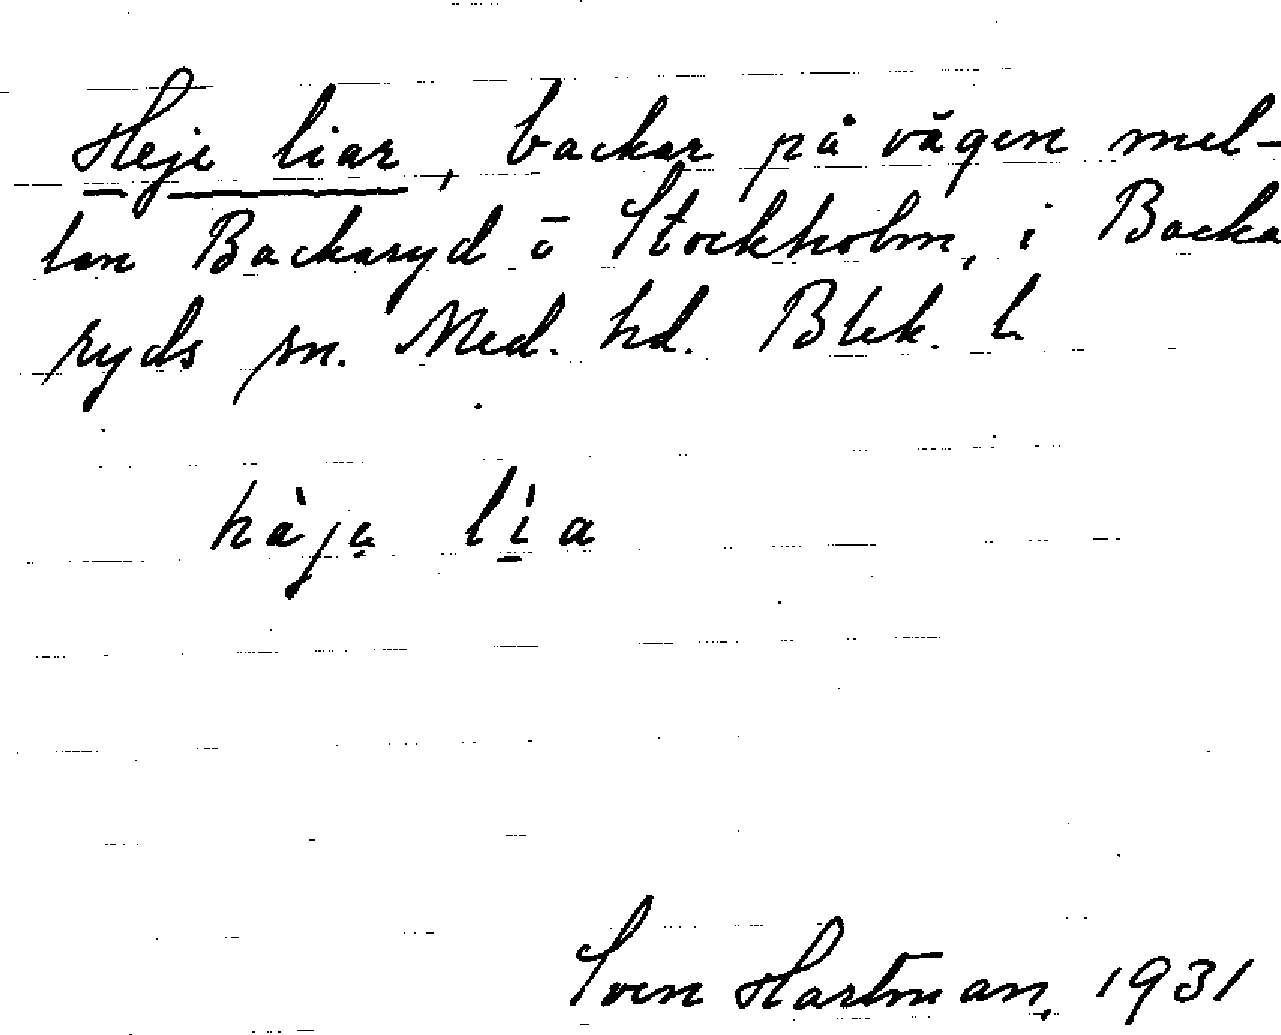 Heje liar, backar på vägen mel-
lan Backaryd ō Stockholm, i Backa
ryds sn. Med. hd. Blek. l.
hàja lìa
Sven Hartman, 1931